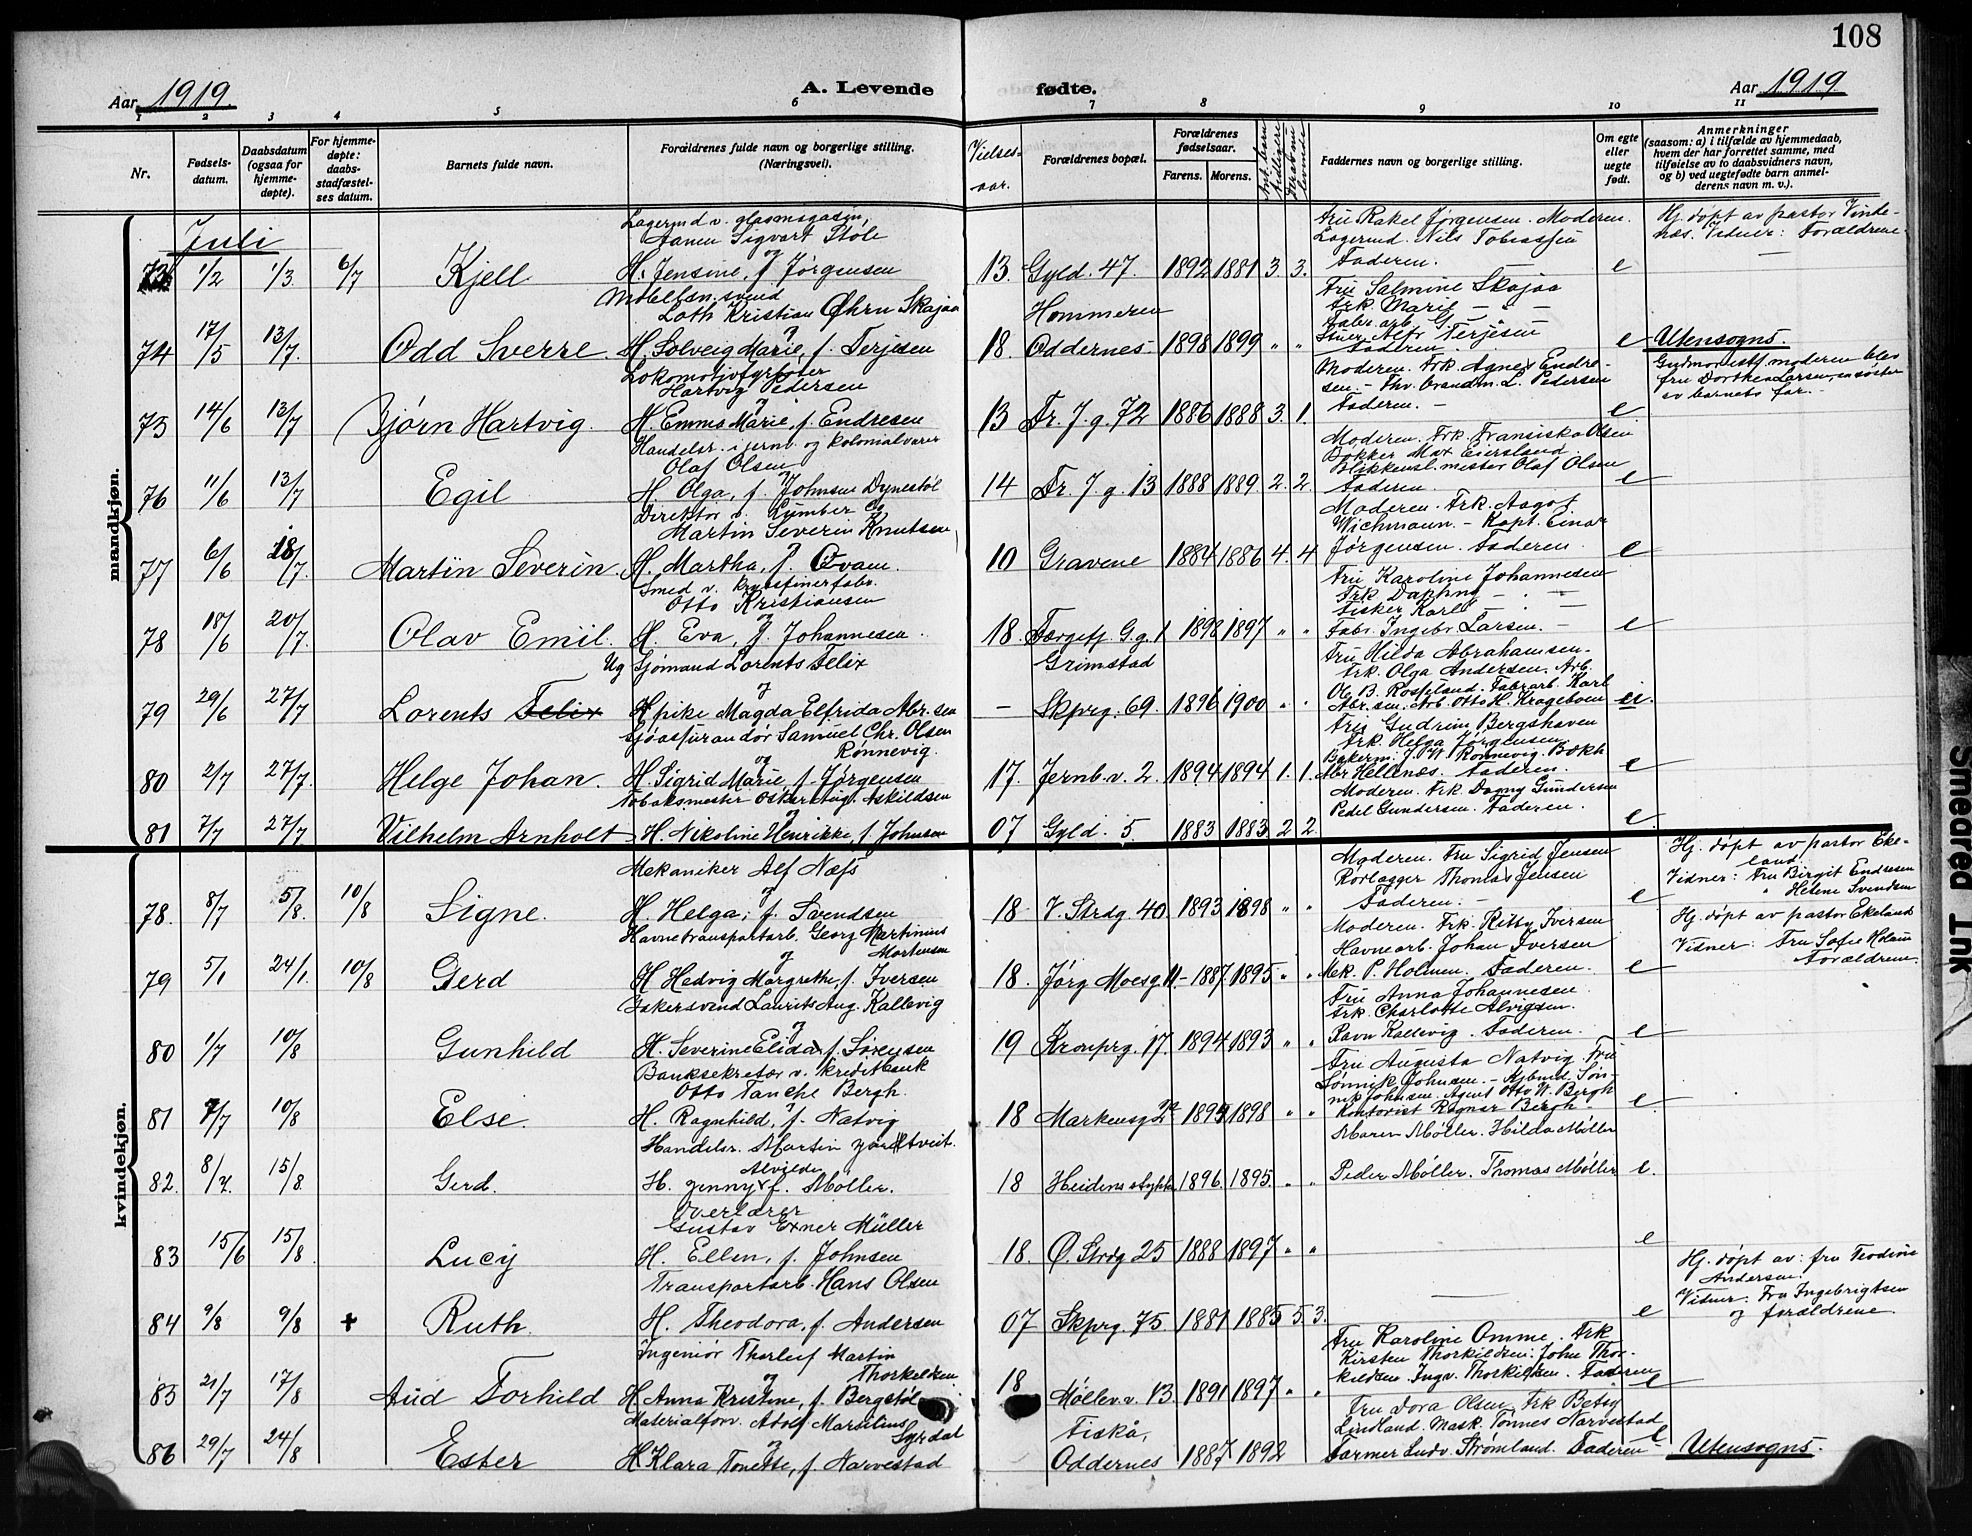 108
Aar 1919.
A. Levende fødte.
Aar 1919
1 2 3 4 5 6 7 8 9 10 11
Nr.
Fødsels-
datum.
Daabsdatum
(ogsaa for
hjemme-
døpte).
For hjemme-
døpte:
daabs-
stadfæstel-
ses datum.
Barnets fulde navn.
Forældrenes fulde navn og borgerlige stilling.
(Næringsvei).
Vielses-
aar.
Forældrenes bopæl.
Forældrenes
fødselsaar.
Farens. Morens.
Faddernes navn og borgerlige stilling.
Om egte
eller
uegte
født.
Anmerkninger
(saasom: a) i tilfælde av hjemmedaab,
hvem der har forrettet samme, med
tilføielse av to daabsvidners navn,
og b) ved uegtefødte barn anmel-
derens navn m. v.).
mandkjøn.
Juli
73 1/2 1/3 6/7 Kjell
Lagermd v. glasmagasin,
Aanen Sigvart Støle
og
H. Jensine, f Jørgensen
13. Gyld. 47. 1892 1881 3. 3.
Fru Rakel Jørgensen. Moderen.
Lagermd. Nils Tobiassen
Faderen. e
Hj. døpt av pastor Vinte-
næs. Vidner: Forældrene
74 17/5 13/7 Odd Sverre
Loth Kristian Øhrn Skajaa
og
H. Solveig Marie, f. Terjesen
18. Hommeren
Oddernes 1898 1899 " "
Fru Salmine Skajaa
Frk Marie - -
Fabr. arb. G - -
Alfr Terjesen
Faderen. e
Utensogns.
75 14/6 13/7 Bjørn Hartvig.
Lokomotivfyrbøter
Hartvig Pedersen
og
H. Emma Marie, f. Endresen
13 Fr. 7. g. 72 1886 1888 3. 1.
Moderen. Frk. Agnes Endre-
sen. - Fhv. brandm. L. Pedersen
Faderen. - e
fru Dorthea Larsen, en søster
av barnets far.
76 11/6 13/7 Egil
Handelsr. i jernv. og kolonialvarer
Olaf Olsen
og
H. Olga, f. Johnsen Dynestøl
14 Fr. 7 g. 13 1888 1889 2. 2.
Moderen. Frk. Fransiska Olsen
Bøkker Max Eiersland
Blikkensl. mester Olaf Olsen
Faderen. e
77 6/6 18/7 Martin Severin
Direktør v. Lumber Co
Martin Severin Knutsen
og
H. Martha, f. Qvam.
10 Gravene 1884 1886 4. 4
Moderen. Frk. Aagot
Wichmann. - Kapt. Einar
Jørgensen. Faderen. e
78 18/6 20/7 Olav Emil
Smed v. krydsfinerfabr.
Otto Kristiansen
og
H. Eva, f. Johannesen
18. Torgeff. G. g. 1 1898 1897 " "
Fru Karoline Johannesen
Frk Daphny - -
Fisker Karl - -
Fabr. Ingebr Larsen. - e
79 29/6 27/7 Lorents Felix
Ug Sjømand Lorents Felix
og
pike Magda Elfrida Abr.sen
- Grimstad
Skprg. 69. 1896 1900 " "
Fru Hilda Abrahamsen.
Frk. Olga Andersen. Arb.
Ole B. Rosseland. Fabr.arb. Karl
Abr.sen. Arb. Otto H. Krageboen ei.
80 2/7 27/7. Helge Johan.
Sjøaspirandør Samuel Chr. Olsen
Rønnevig.
og
H. Sigrid Marie, f. Jørgensen
17. Jernb. v. 2. 1894 1894 1. 1.
Fru Gudrun Bergshaven
Frk. Helga Jørgensen
Bakerm. J. W. Rønnevig. Bokh
Abr Hellenæs. Faderen. e
81 7/7 27/7 Vilhelm Arnholt
Tobaksmester Oskar Aug. Askildsen
og
H. Nikoline Henrikke, f. Johnsen
07 Gyld. 5 1883 1883 2 2.
Moderen. Frk. Dagny Gundersen
Pedel Gundersen. Faderen. e
kvindekjøn.
78. 8/7 5/8. 10/8 Signe.
Mekaniker Alf Næss
og
H. Helga, f. Svendsen
18 V. Strdg. 40. 1893 1898 " "
Moderen. Fru Sigrid Jensen
Rørlægger Thomas Jensen
Faderen. - e
Hj. døpt av pastor Eke-
land.
Vidner: Fru Birgit Endresen
" Helene Svendsen
79 5/1 24/1. 10/8 Gerd
Havnetransportarb. Georg Martinius
Mortensen
og
H Hedvig Margrethe, f. Iversen
18. Jørg. Moesg. 11 - 1887. 1895 " "
Moderen. Frk. Ritty Iversen
Havnearb. Johan Iversen
Mek. P. Holmen. Faderen. e
Hj. døpt av pastor Ekeland
Vidner: Fru Sofie Holum
Forældrene.
80 1/7 10/8 Gunhild
Bakersvend Laurits Aug. Kallevig
og
H. Severine Elida, f. Sørensen
19 Kronprg. 17. 1894 1893 " "
Fru Anna Johannesen
Frk. Charlotte Alvigsen.
Ravn Kallevig. Faderen. e
81 7/7 10/8 Else.
Banksekretær v. kreditbank
Otto Tanche Bergh.
og
H. Ragnhild, f. Natvig
18 Markensg 1894 1898 " "
Fru Augusta Natvig. Fru
Sønnik Johnsen. - Kjbmd. Søn-
nik Johnsen. Agent Otto W. Bergh
Kontorist Ragnar Bergh - e
82. 8/7. 15/8. Gerd.
Handelsr. Martin Jordtveit.
Alvilde
H. Jenny f. Møller.
18 Heidens stykke 1896. 1895. " "
Maren Møller. Hilda Møller
Peder Møller. Thomas Møller e.
83 15/6 15/8. Lucy
Overlærer
Gustav Exner Müller
H. Ellen, f. Johnsen
18. Ø. Strdg 25 1888 1897 " " e
84 9/8 9/8 + Ruth.
Transportarb. Hans Olsen
H. Theodora, f. Andersen
07 Skprg. 75. 1881 1885 5. 3. e
Hj. døpt av: fru Teodine
Andersen.
Vidner: Fru Ingebrigtsen
og forældrene.
85 21/7 17/8 Aud Torhild
Ingeniør Thorleif Martin
Thorkildsen
og
H Anna Kristine, f. Bergstøl
18 Møllev. v. 13. 1891 1897 " "
Fru Karoline Omme. Frk
Kirsten Thorkildsen. John Thor-
kildsen. Ingv. Thorkildsen. Faderen e
86 29/7 24/8 Ester
Materialforv. Adolf Marselius
Syrdal
og
H Klara Tonette, f. Narvestad
Fiskå,
Oddernes 1887 1892
Fru Dora Olsen. Frk Betsy
Lindland. Mask. Tønnes Narvestad
Farmer Ludv. Strømland. Faderen - e
Utensogns.
Smedred Ink